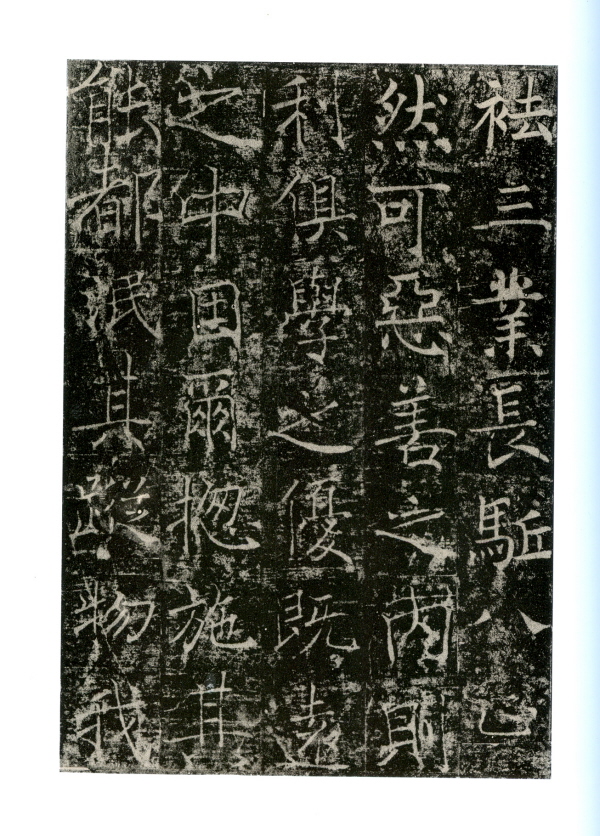 袪三業長駈八
然可惡善之兩則
利俱學之優既遠
之中因爾揔施其
能都泯其蹤物我